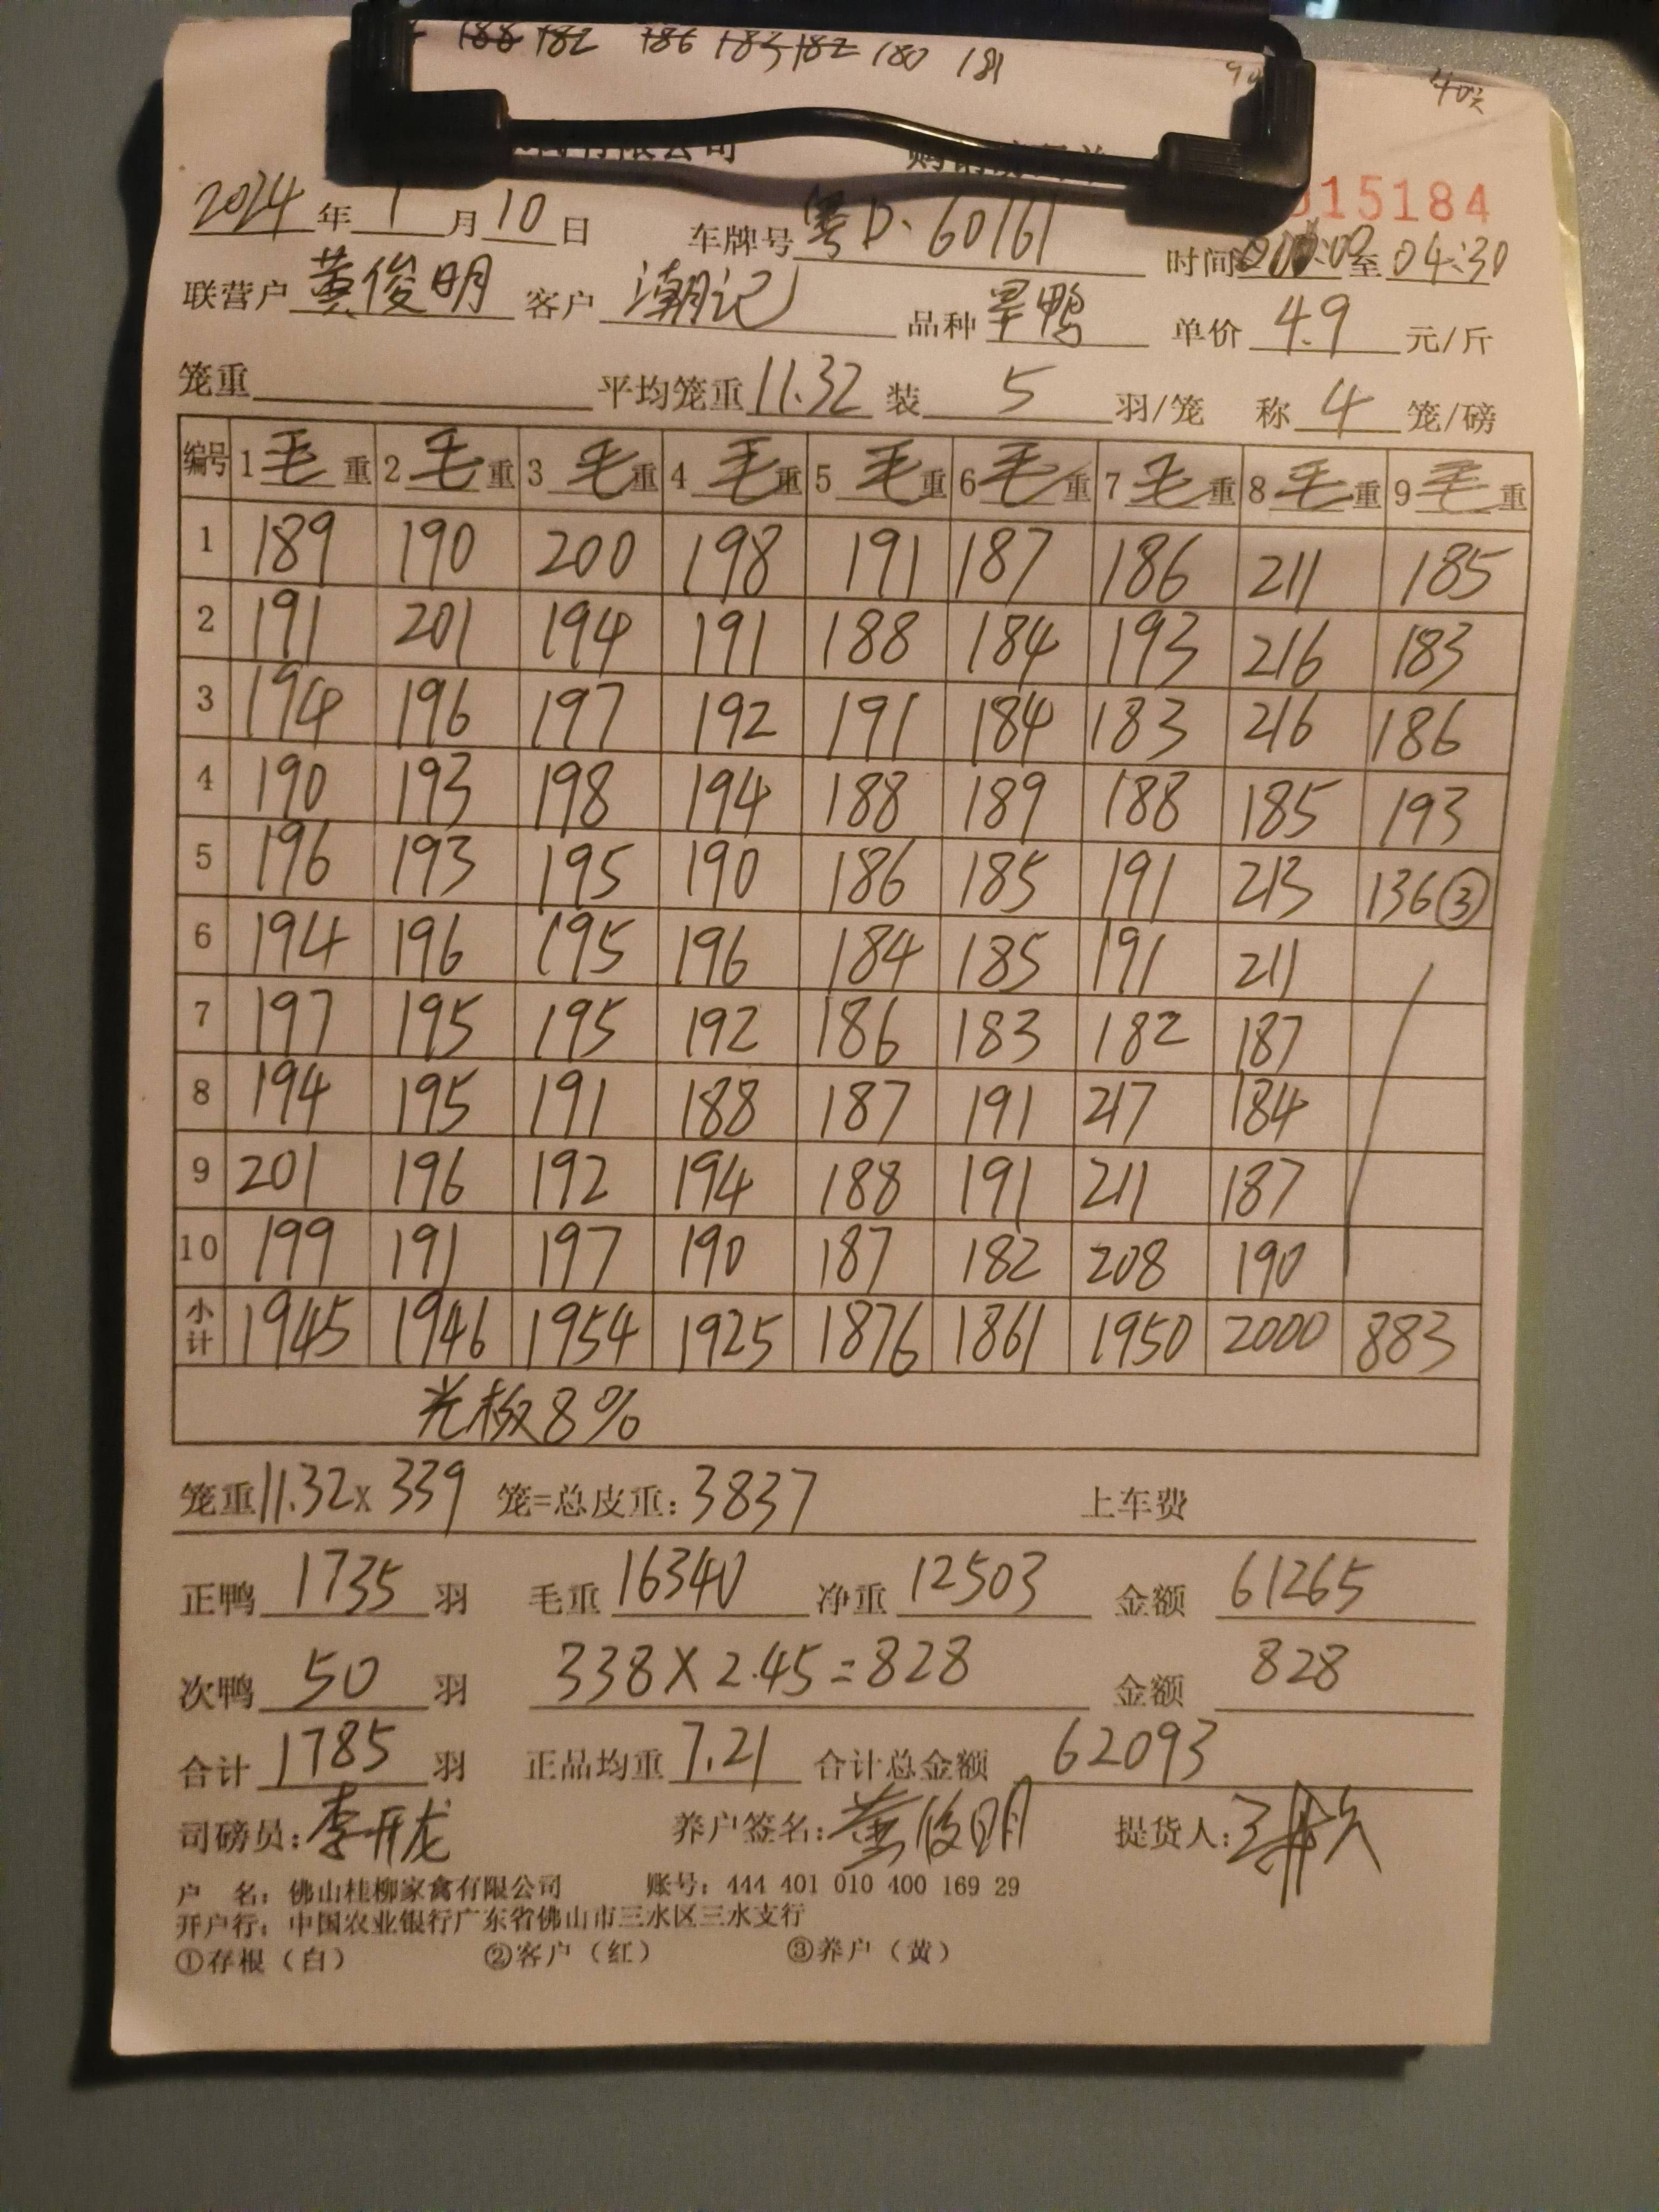 188 182 186 183 182 180 181
有限公司
15184
2024年1月10日 车牌号粤D·60161 时间 至04:30
联营户黄俊明 客户潮记 品种 鸭 单价4.9元/斤
笼重 平均笼重11.32 装5羽/笼 称4笼/磅
编号 1毛重 2毛重 3毛重 4毛重 5毛重 6毛重 7毛重 8毛重 9毛重
1 189 190 200 198 191 187 186 211 185
2 191 201 194 191 188 184 193 216 183
3 194 196 197 192 191 184 183 216 186
4 190 193 198 194 188 189 188 185 193
5 196 193 195 190 186 185 191 213 136③
6 194 196 195 196 184 185 191 211
7 197 195 195 192 186 183 182 187
8 194 195 191 188 187 191 217 184
9 201 196 192 194 188 191 211 187
10 199 191 197 190 187 182 208 190
小计 1945 1946 1954 1925 1876 1861 1950 2000 883
光板8%
笼重11.32x339笼=总皮重:3837 上车费
正鸭1735羽 毛重16340 净重12503 金额61265
次鸭50羽 338X2.45=828 金额828
合计1785羽 正品均重7.21 合计总金额62093
司磅员:李开龙 养户签名:黄俊明 提货人:
户 名:佛山桂柳家禽有限公司 账号:444 401 010 400 169 29
开户行:中国农业银行广东省佛山市三水区三水支行
①存根(白) ②客户(红) ③养户(黄)